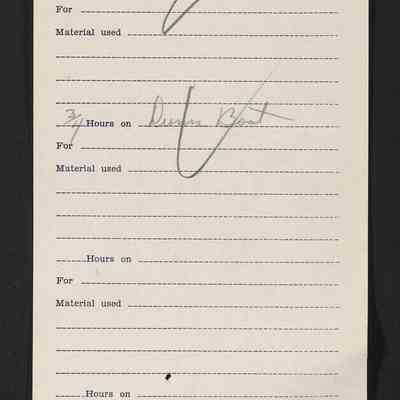 For
Material used
3/4 Hours on Boat
For
Material used
Hours on
For
Material used
Hours on